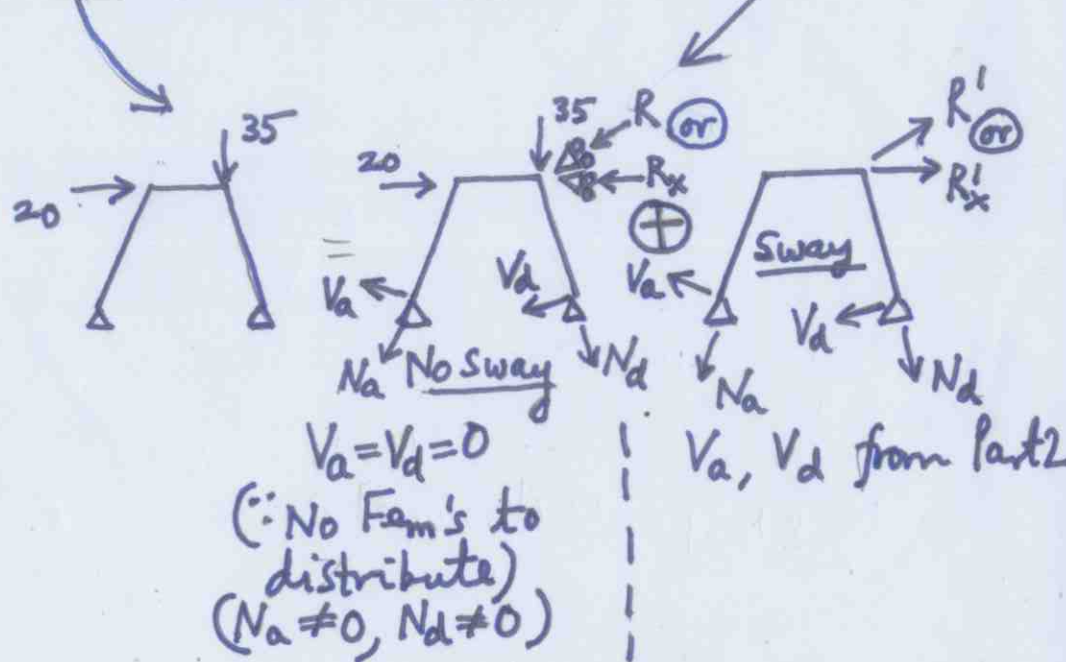 35
20
=
35
R or
20
Rx
+
Va
Vd
Na
No sway
Nd
Va=Vd=0
(∵ No Fem's to
distribute)
(Na≠0, Nd≠0)
R' or
R'x
Sway
Va
Vd
Na
Nd
Va, Vd from Part2